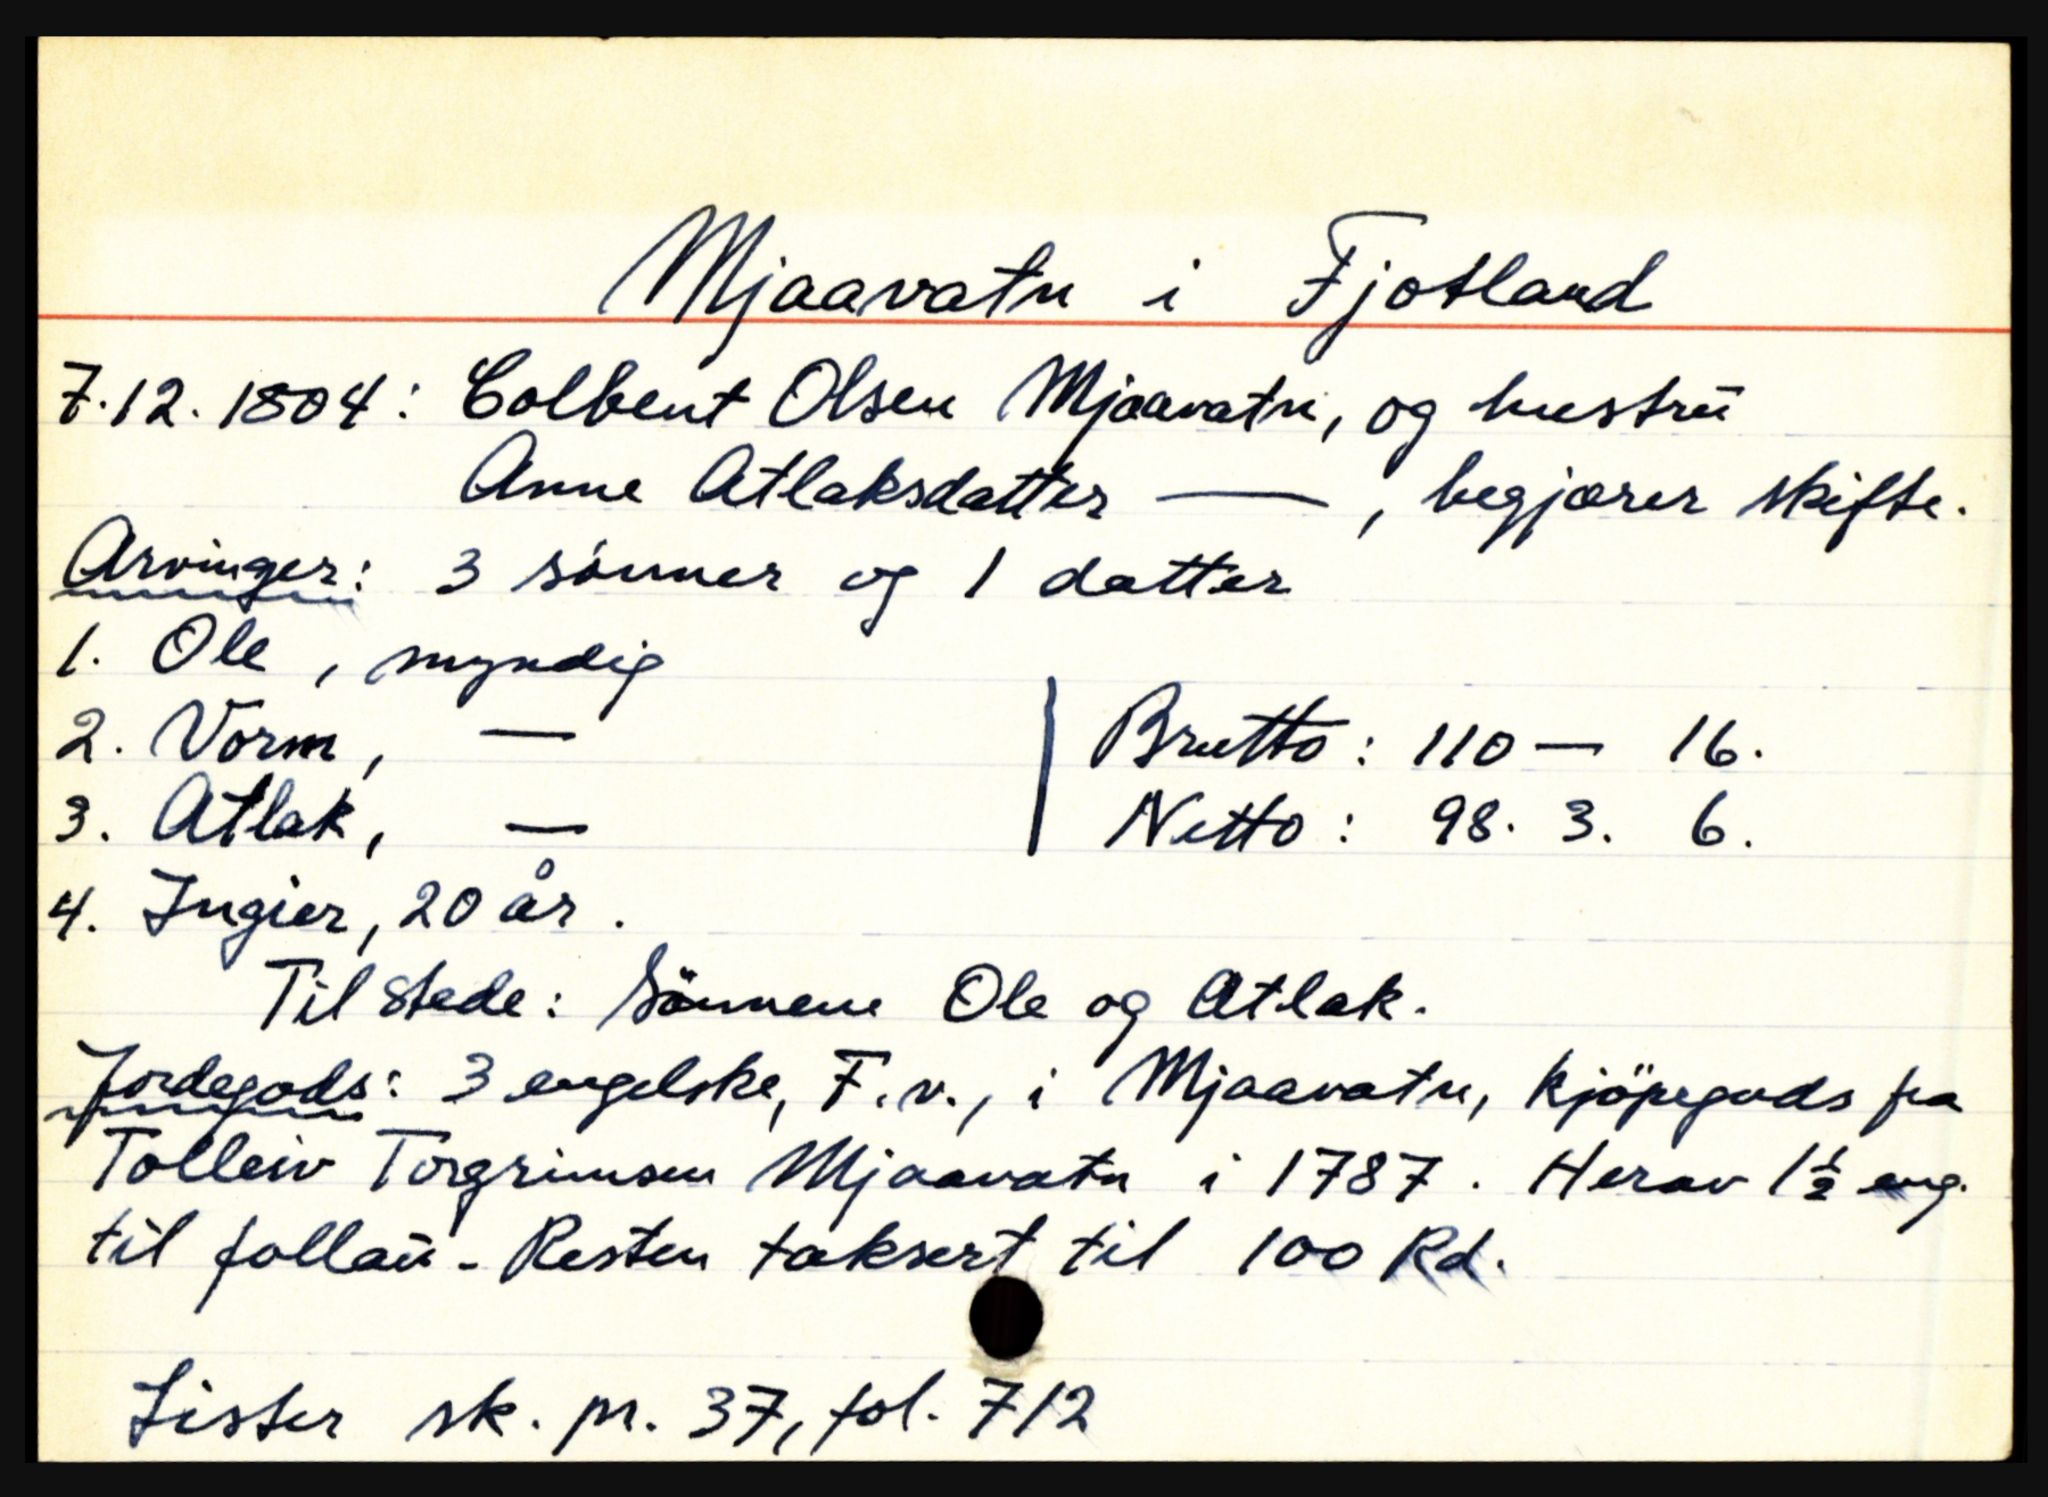 Mjaavatn i Fjotland
7.12.1804: Colbent Olsen Mjaavatn, og hustrū
Anne Atlaksdatter —, begjærer skifte.
Arvinger: 3 sønner og 1 datter
1. Ole, myndig
2. Vorm, —
3. Atlak, —
Brutto: 110 — 16.
Netto: 98. 3. 6.
4. Ingier, 20 år.
Til stede: Sönnene Ole og Atlak.
Jordegods: 3 engelske, F.v., i Mjaavatn, kjöpegods fra
Tolleiv Torgrimsen Mjaavatn i 1787. Herav 1½ eng.
til follaū - Resten taksert til 100 Rd.
Lister sk. pr. 37, fol. 712